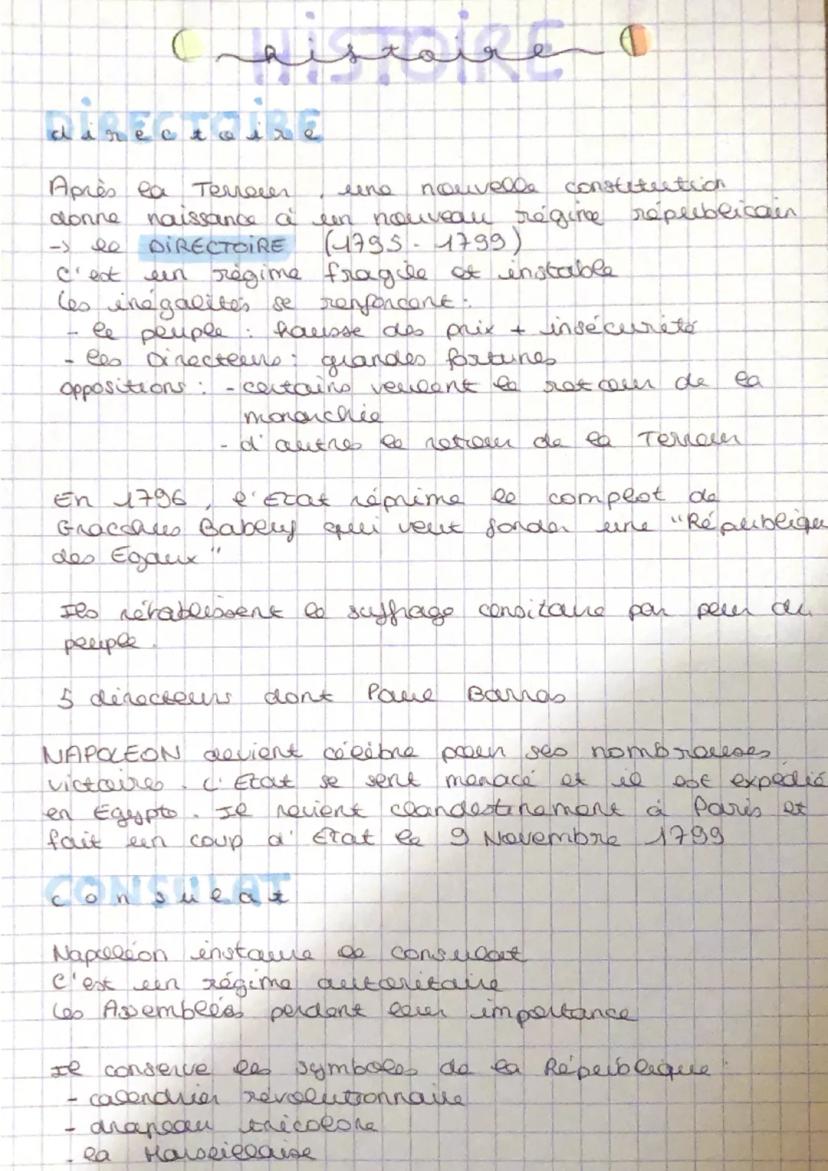 HISTOIRE
histoire
DIRECTOIRE
directoire
Après la Terreur, une nouvelle constitution
donne naissance à un nouveau régime républicain
-> le DIRECTOIRE (1795-1799)
C'est un régime fragile et instable
Les inégalités se renforcent :
- le peuple : hausse des prix + insécurité
- les Directeurs : grandes fortunes
oppositions : - certains veulent le retour de la
monarchie
- d'autres le retour de la Terreur
En 1796, l'Etat réprime le complot de
Gracchus Babeuf qui veut fonder une "République
des Egaux"
Ils rétablissent le suffrage censitaire par peur du
peuple.
5 directeurs dont Paul Barras
NAPOLEON devient célèbre pour ses nombreuses
victoires. L'Etat se sent menacé et il est expédié
en Egypte. Il revient clandestinement à Paris et
fait un coup d'Etat le 9 Novembre 1799
CONSULAT
consulat
Napoléon instaure le consulat
C'est un régime autoritaire
Les Assemblées perdent leur importance
Il conserve les symboles de la République :
- calendrier révolutionnaire
- drapeau tricolore
- la Marseillaise